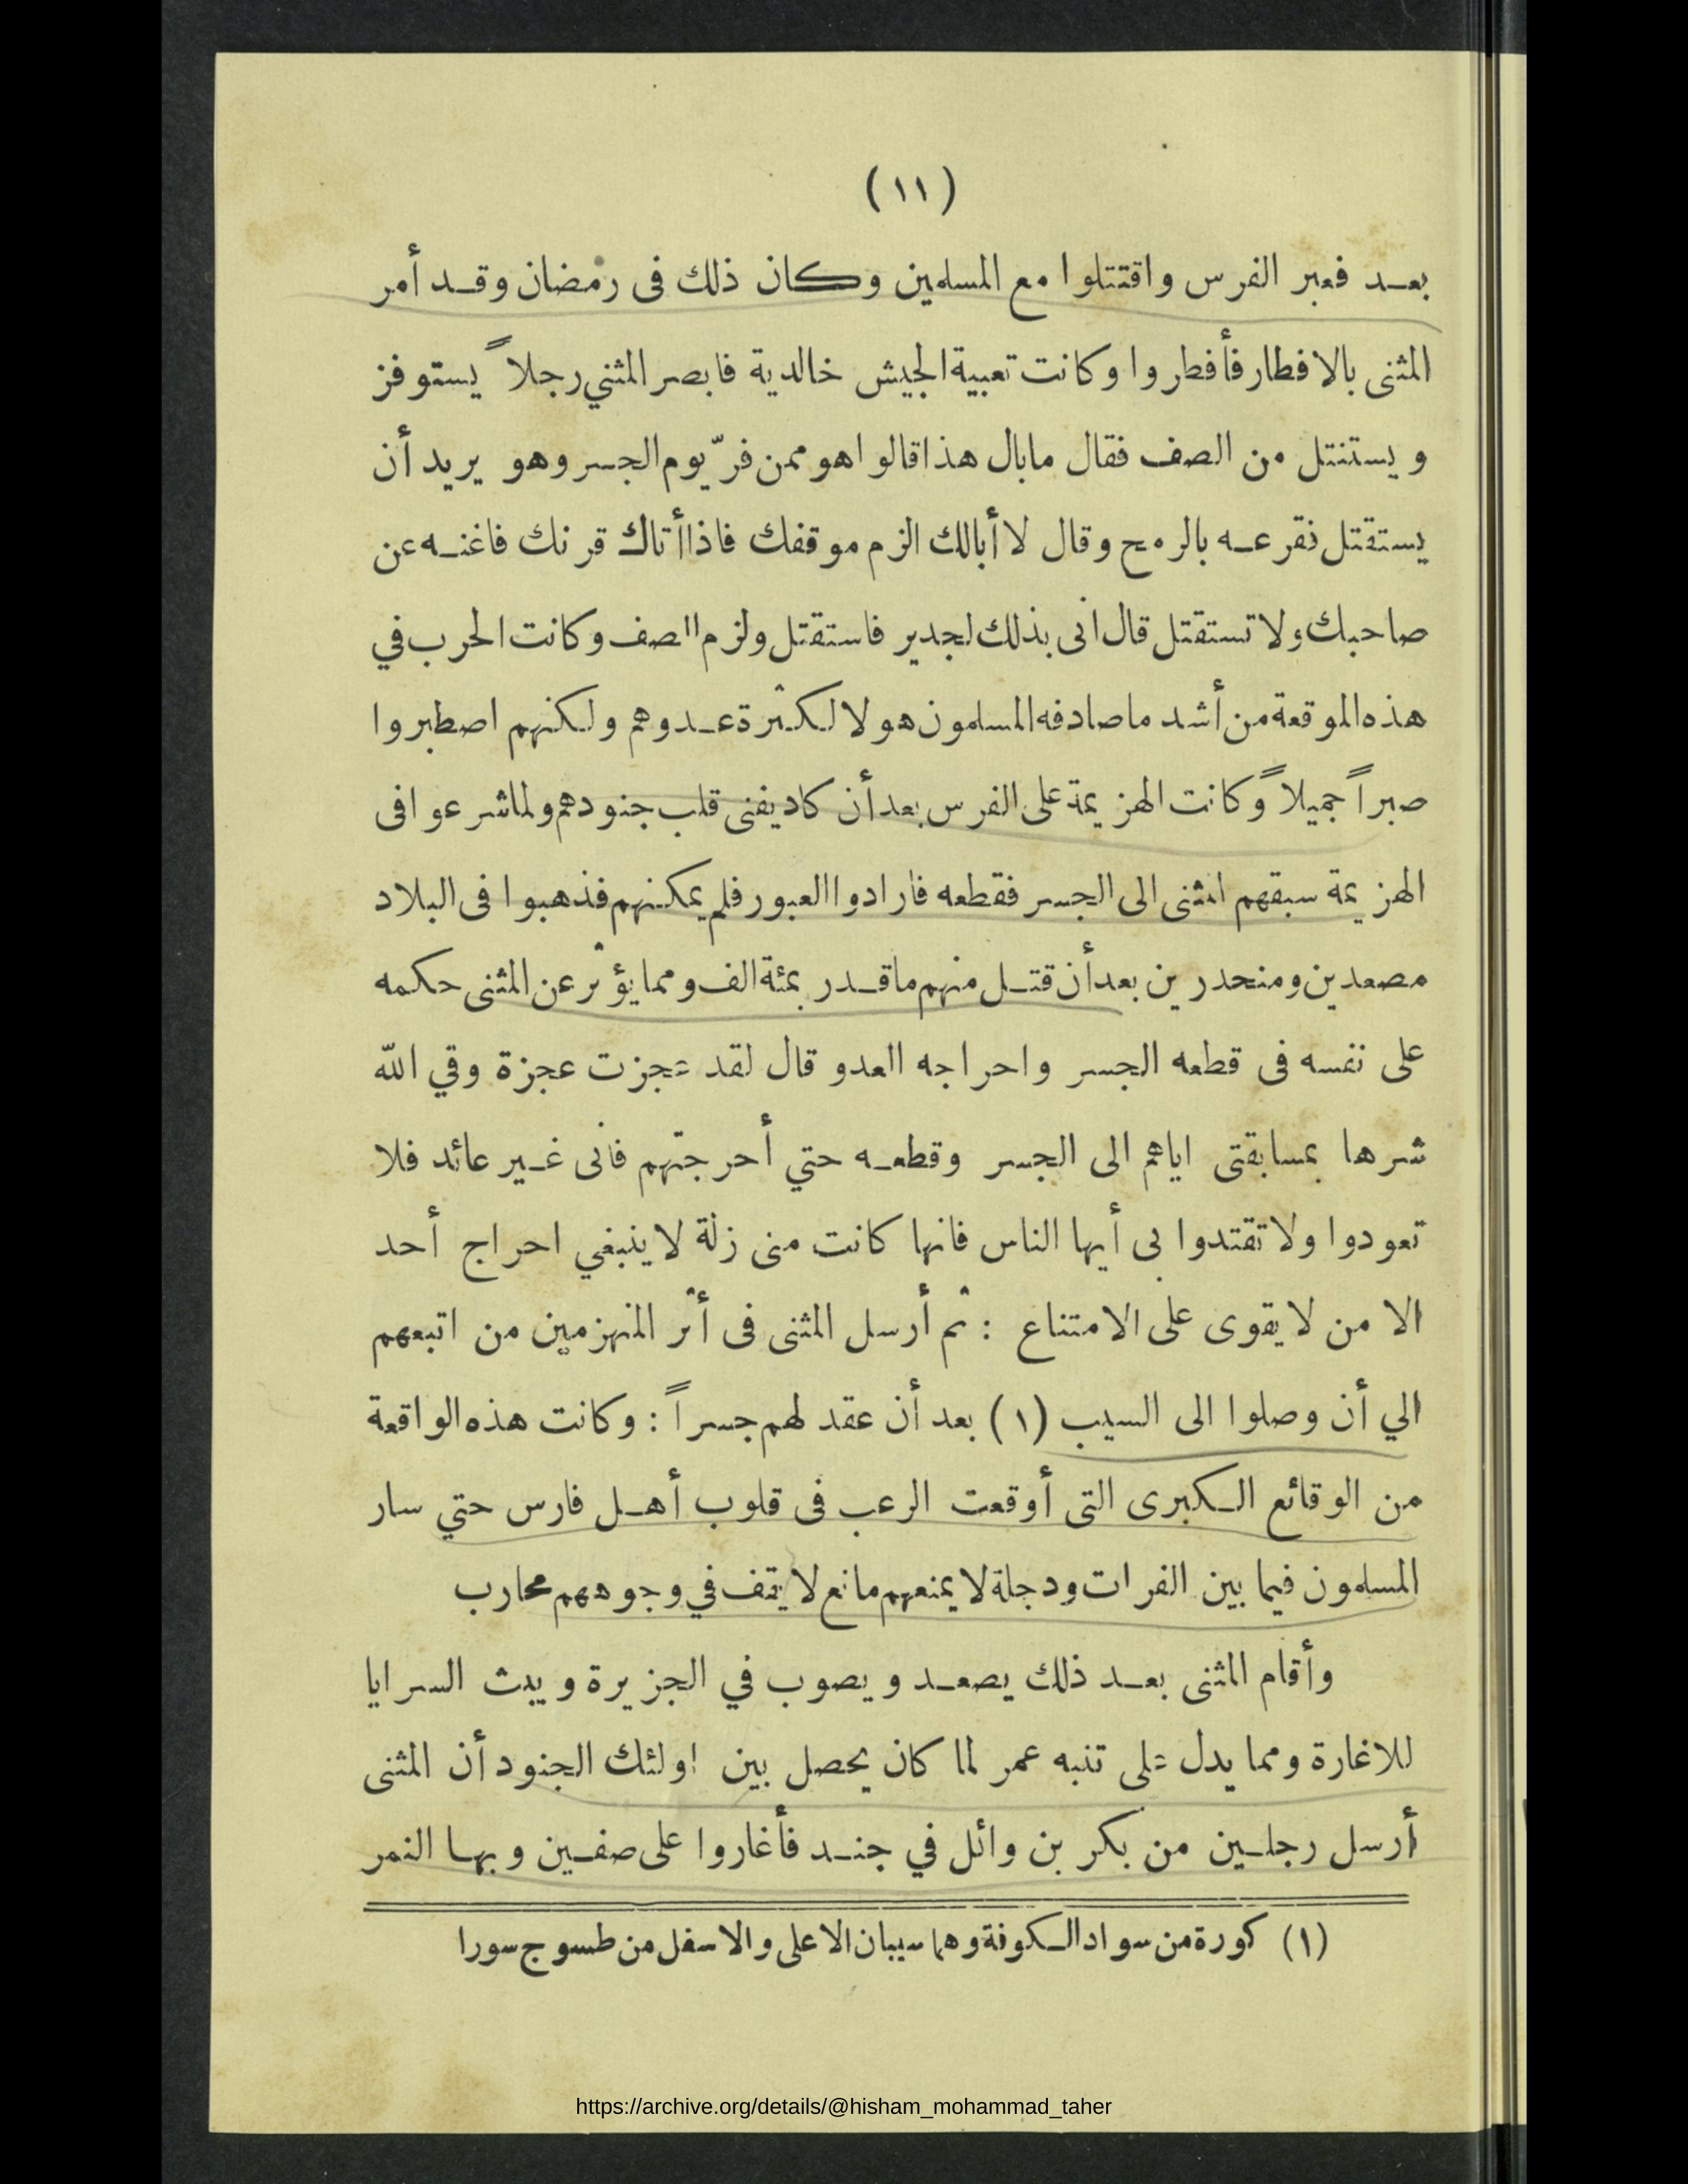 (١١)
بعد فعبر الفرس واقتتلوا مع المسلمين وكان ذلك فى رمضان وقد أمر
المثنى بالافطار فأفطروا وكانت تعبية الجيش خالدية فابصر المثني رجلاً يستوفز
ويستنتل من الصف فقال مابال هذا قالوا هو ممن فرّ يوم الجسر وهو يريد أن
يستقتل فقرعه بالرمح وقال لا أبالك الزم موقفك فاذا أتاك قرنك فاغنه عن
صاحبك ولا تستقتل قال انى بذلك لجدير فاستقتل ولزم الصف وكانت الحرب في
هذه الموقعة من أشد ما صادفه المسلمون هولا لكثرة عدوهم ولكنهم اصطبروا
صبراً جميلاً وكانت الهزيمة على الفرس بعد أن كاد يفنى قلب جنودهم ولما شرعوا فى
الهزيمة سبقهم المثنى الى الجسر فقطعه فارادوا العبور فلم يمكنهم فذهبوا فى البلاد
مصعدين ومنحدرين بعد أن قتل منهم ما قدر بمئة الف ومما يؤثر عن المثنى حكمه
على نفسه فى قطعه الجسر واحراجه العدو قال لقد عجزت عجزة وقي الله
شرها بمسابقتى اياهم الى الجسر وقطعه حتي أحرجتهم فانى غير عائد فلا
تعودوا ولا تقتدوا بى أيها الناس فانها كانت منى زلة لا ينبغي احراج أحد
الا من لا يقوى على الامتناع : ثم أرسل المثنى فى أثر المنهزمين من اتبعهم
الي أن وصلوا الى السيب (١) بعد أن عقد لهم جسراً : وكانت هذه الواقعة
من الوقائع الكبرى التى أوقعت الرعب فى قلوب أهل فارس حتي سار
المسلمون فيما بين الفرات ودجلة لا يمنعهم مانع لا يقف في وجوههم محارب
وأقام المثنى بعد ذلك يصعد ويصوب في الجزيرة ويبث السرايا
للاغارة ومما يدل على تنبه عمر لما كان يحصل بين اولئك الجنود أن المثنى
أرسل رجلين من بكر بن وائل في جند فأغاروا على صفين وبها النمر
(١) كورة من سواد الكوفة وهما سيبان الاعلى والاسفل من طسوج سورا
https://archive.org/details/@hisham_mohammad_taher